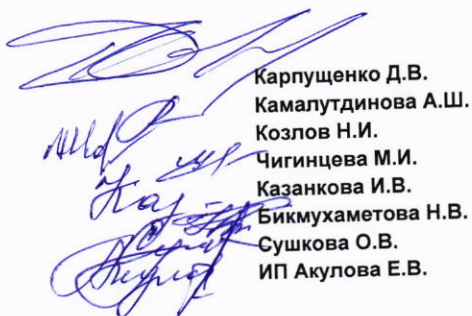 Карпущенко Д.В.
Камалутдинова А.Ш.
Козлов Н.И.
Чигинцева М.И.
Казанкова И.В.
Бикмухаметова Н.В.
Сушкова О.В.
ИП Акулова Е.В.